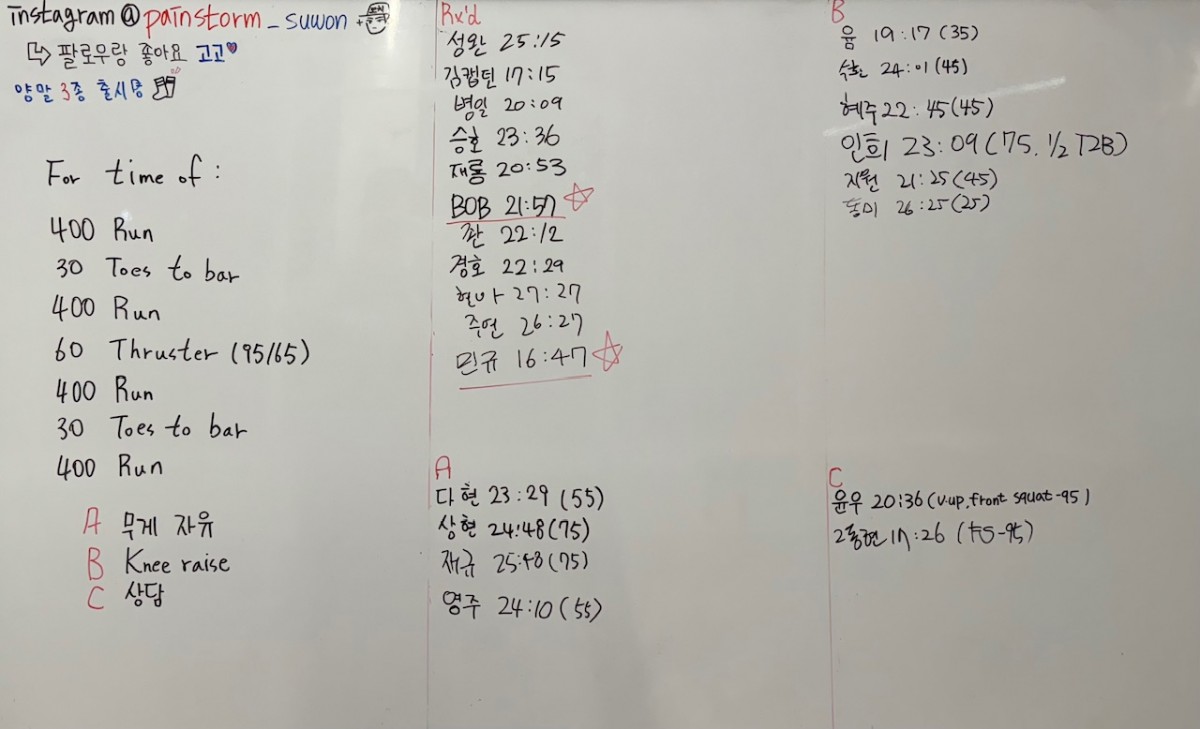 instagram@painstorm_suwon
팔로우랑 좋아요 고고
양말 3종 출시중
For time of :
400 Run
30 Toes to bar
400 Run
60 Thruster (95/65)
400 Run
30 Toes to bar
400 Run
A 무게 자유
B Knee raise
C 상담
Rx'd
성완 25:15
김캡틴 17:15
병일 20:09
승호 23:36
재룡 20:53
BOB 21:57
환 22:12
경호 22:29
현아 27:27
주연 26:27
민규 16:47
A
다현 23:29 (55)
상현 24:48 (75)
재규 25:48 (75)
영주 24:10 (55)
B
윰 19:17 (35)
24:01 (45)
혜주 22:45 (45)
인희 23:09 (75. 1/2 T2B)
지원 21:25 (45)
동미 26:25 (25)
C
윤우 20:36 (v-up, front squat-95)
17:26 (FS-95)